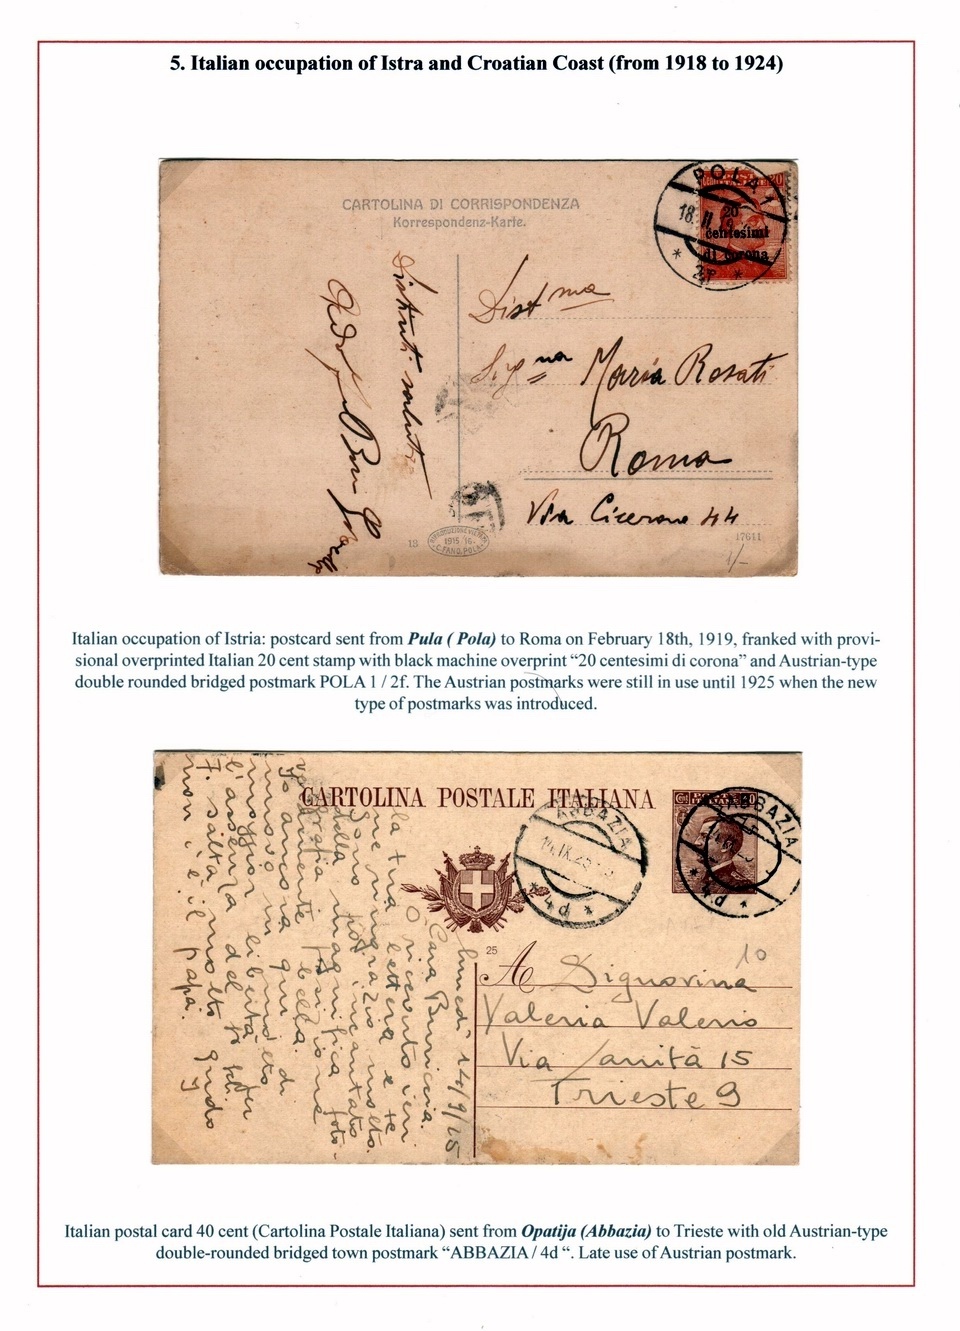 5. Italian occupation of Istra and Croatian Coast (from 1918 to 1924)
CARTOLINA DI CORRISPONDENZA
Korrespondenz-Karte.
POLA 1
18. II. 19
* 2f *
20
centesimi
di corona
Distinti saluti
Dist ma
Sig na Maria Rosati
Roma
Via Cicerone 44
18
1915/16
C. FANO, POLA
17611
1/-
Italian occupation of Istria: postcard sent from Pula ( Pola) to Roma on February 18th, 1919, franked with provi-
sional overprinted Italian 20 cent stamp with black machine overprint “20 centesimi di corona” and Austrian-type
double rounded bridged postmark POLA 1 / 2f. The Austrian postmarks were still in use until 1925 when the new
type of postmarks was introduced.
CARTOLINA POSTALE ITALIANA
ABBAZIA
14.IX.25
* 4d *
ABBAZIA
* 4d *
25
10
A Signorina
Valeria Valerio
Via Sanità 15
Trieste 9
lunedì 14/9/25
Cara Burriccia.
O ricevuto ieri
la tua lettera e te
ne ringrazio molto.
Sono incantato
della magnifica foto-
bella.
ancora qui di
maggior libertà per
l'assenza del
T. salta molto
non c'è il papà.
Italian postal card 40 cent (Cartolina Postale Italiana) sent from Opatija (Abbazia) to Trieste with old Austrian-type
double-rounded bridged town postmark “ABBAZIA / 4d “. Late use of Austrian postmark.